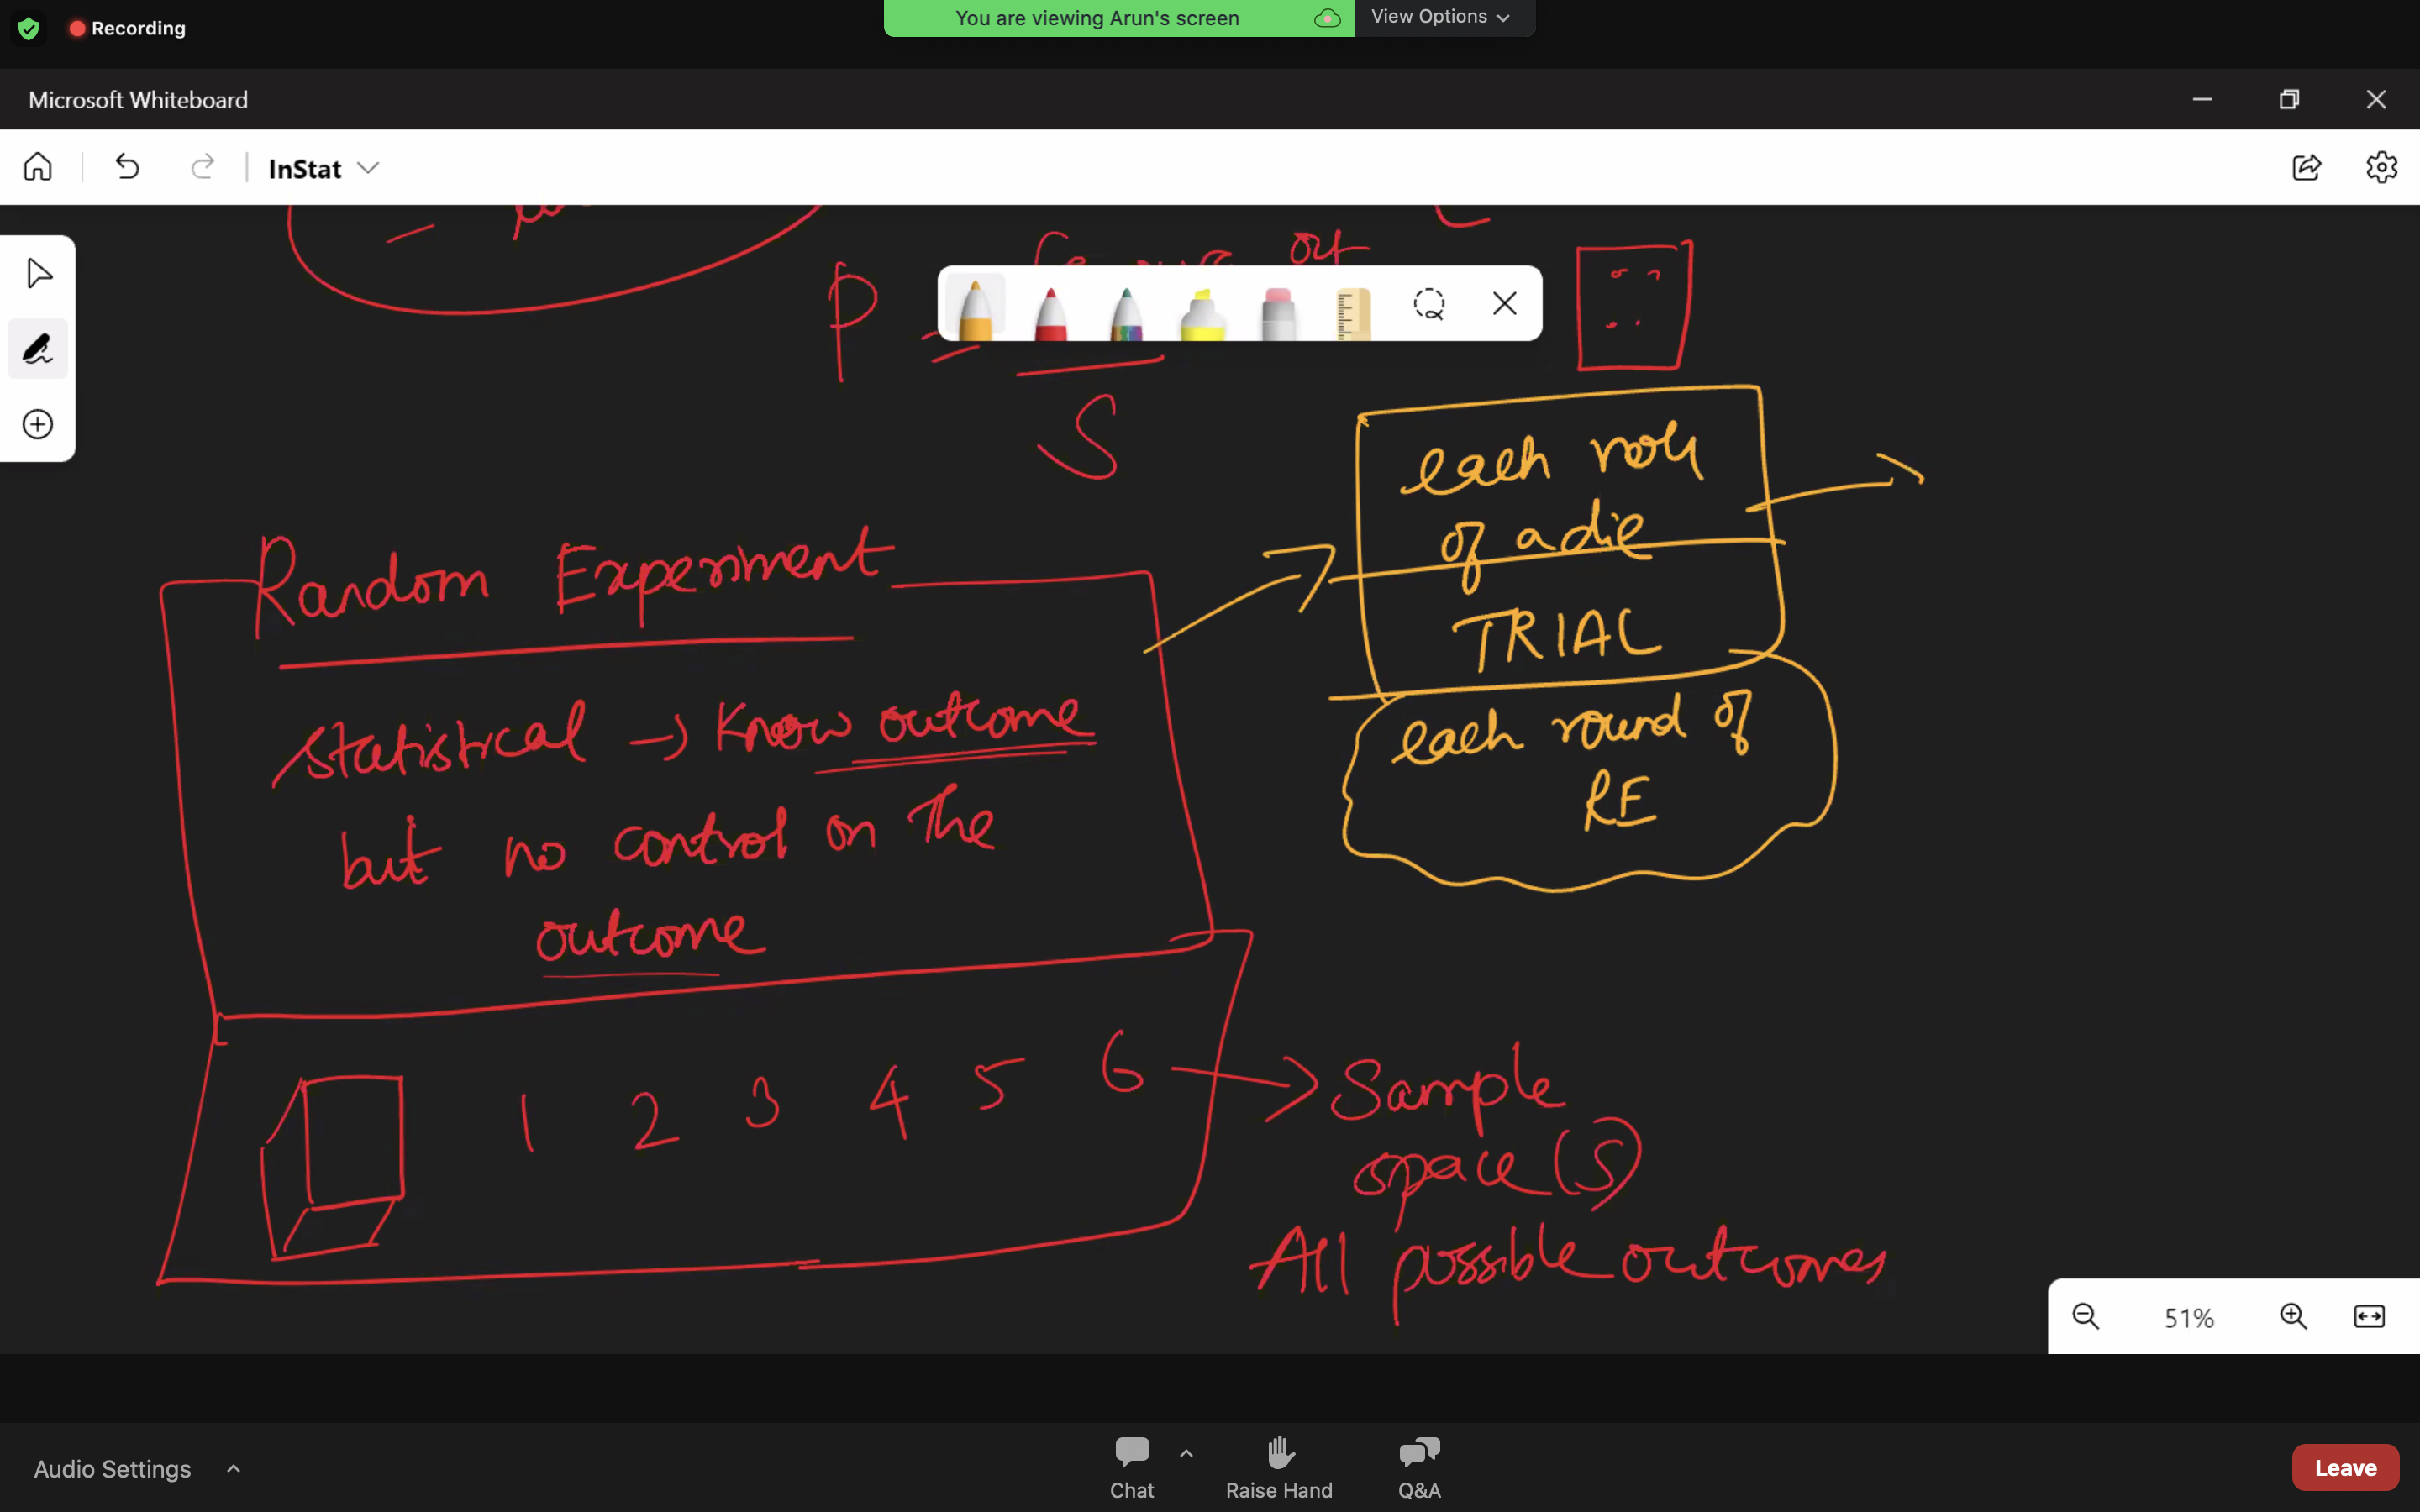 Recording
You are viewing Arun's screen
View Options
Microsoft Whiteboard
InStat
out
P =
S
each roll
of a die
TRIAL
each round of
RE
Random Experiment
Statistical → Know outcome
but no control on the
outcome
1 2 3 4 5 6 → Sample
space (S)
All possible outcomes
51%
Audio Settings
Chat
Raise Hand
Q&A
Leave